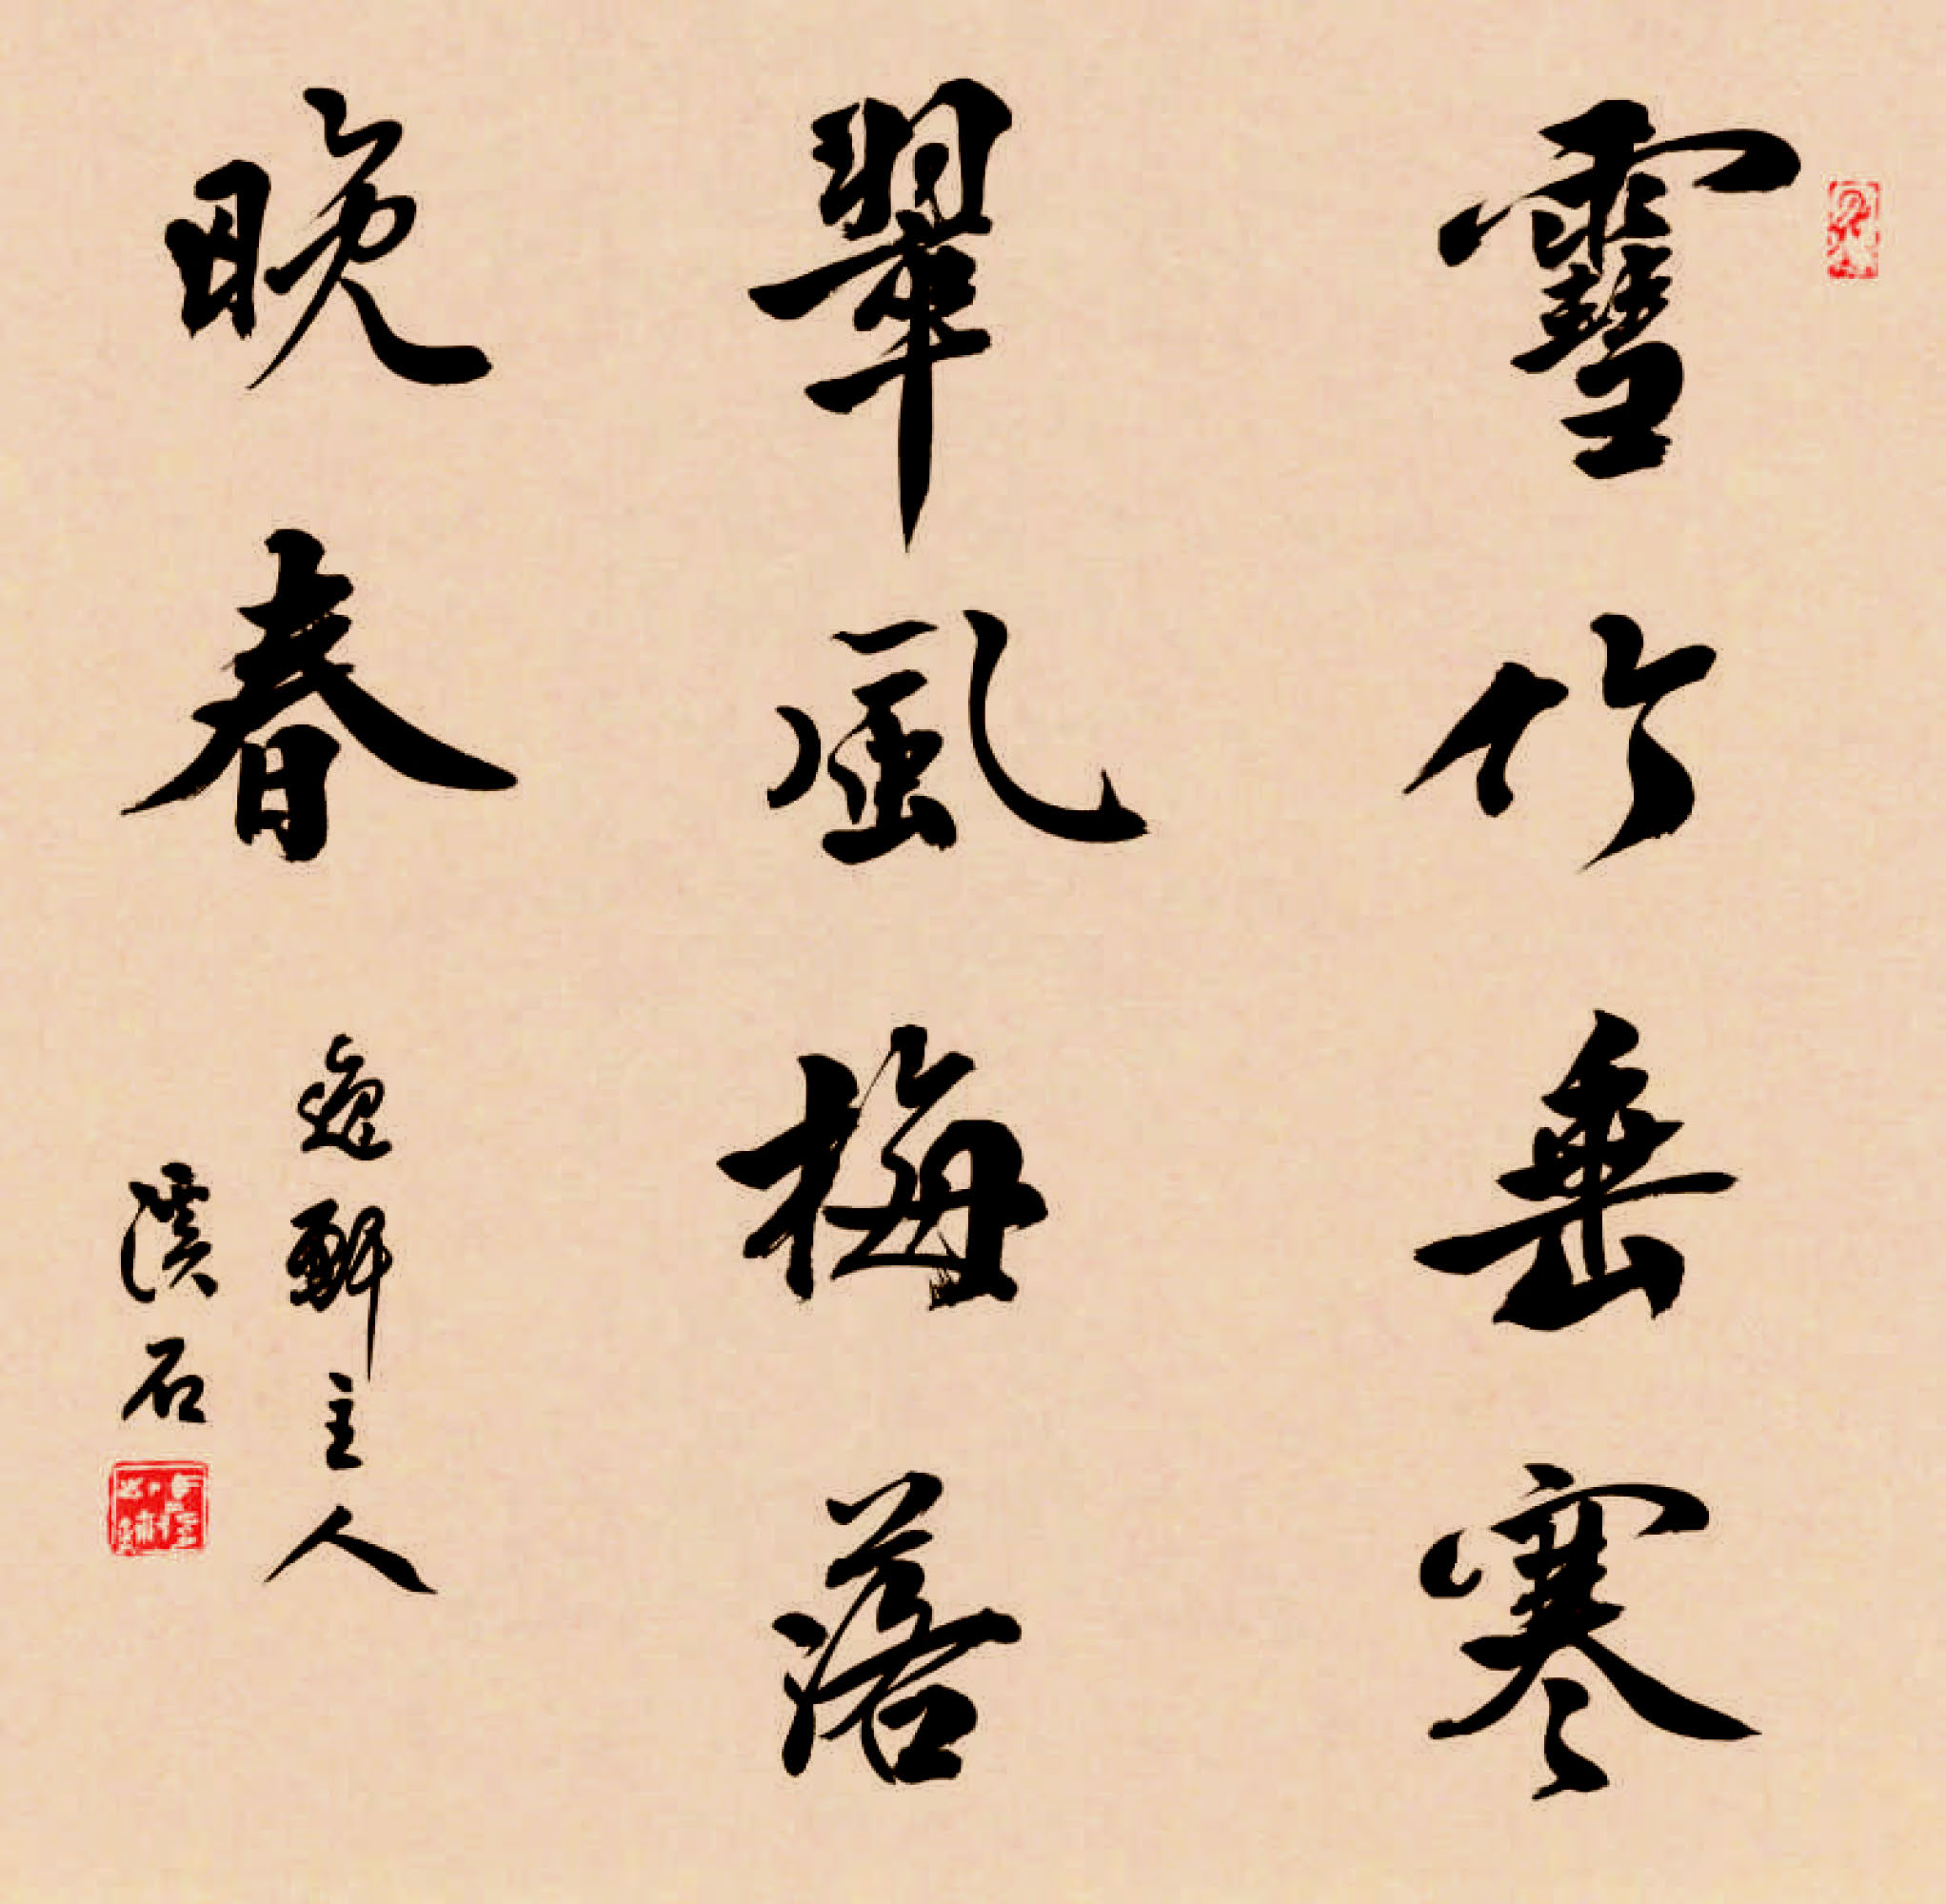 雪竹垂寒
翠風梅落
晚春
逸軒主人
溪石